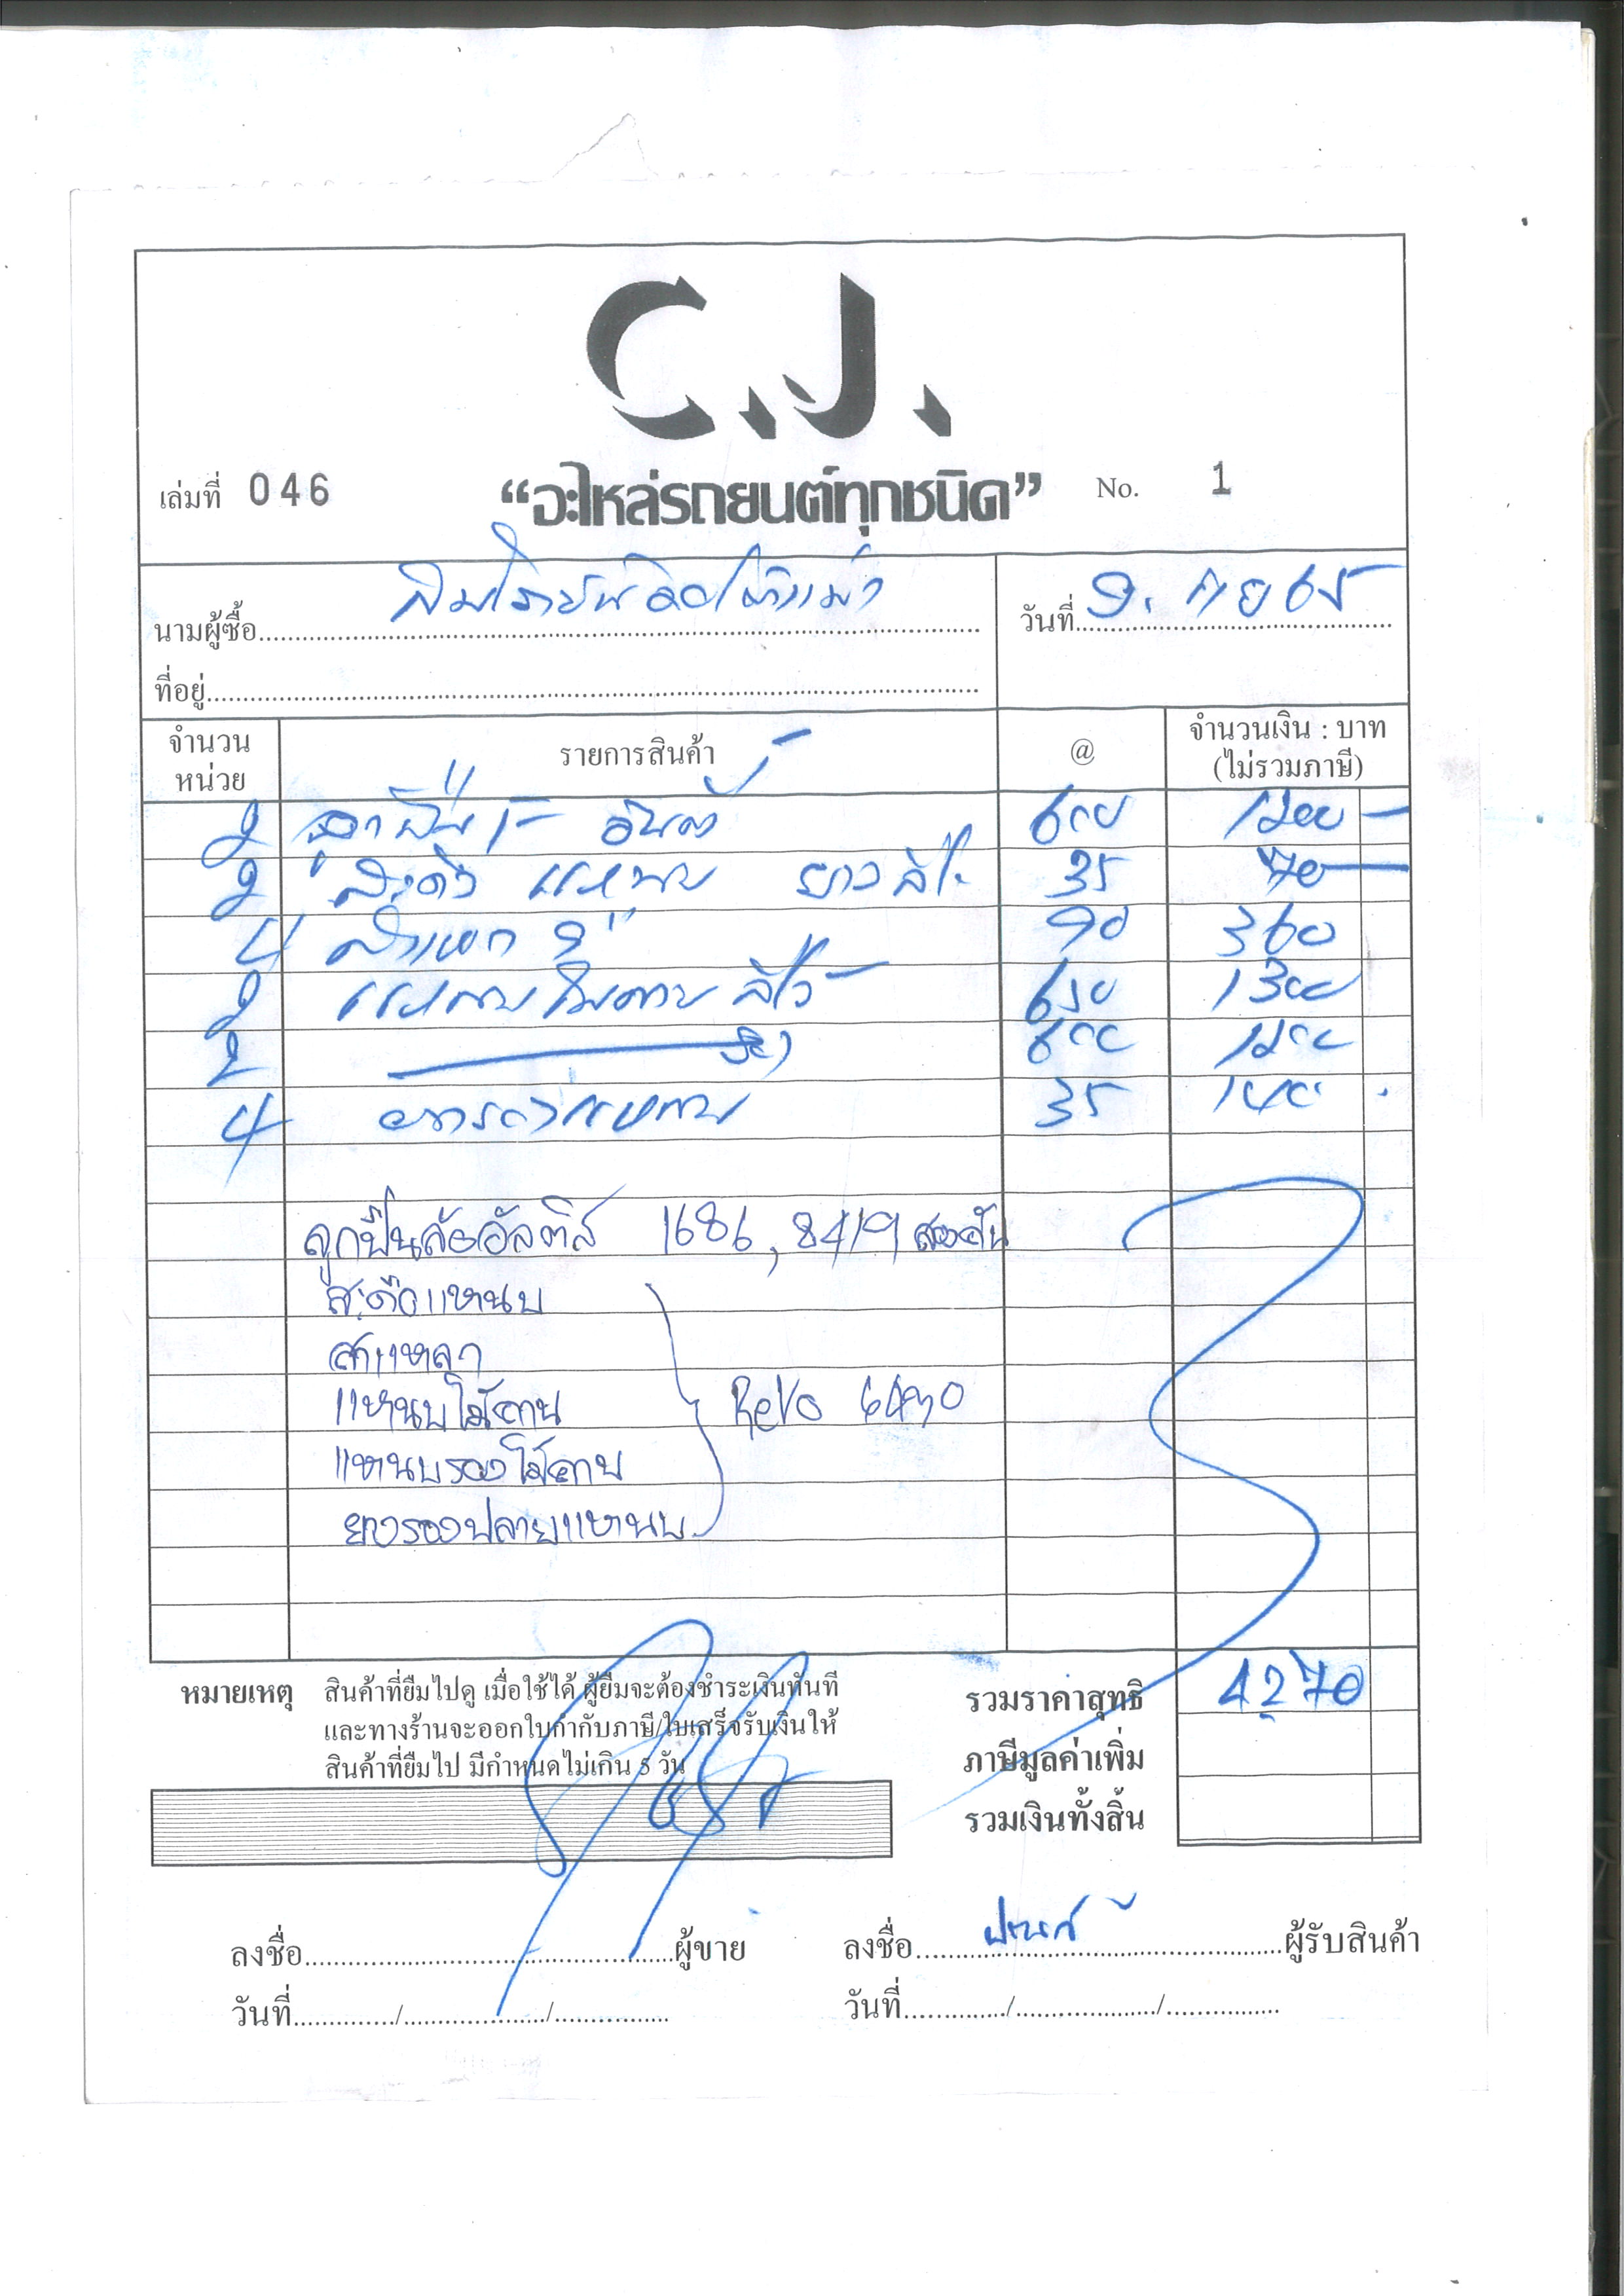 C.J.
เล่มที่ 046 “อะไหล่รถยนต์ทุกชนิด” No. 1
นามผู้ซื้อ
วันที่ 9. กย 65
ที่อยู่
จำนวนหน่วย รายการสินค้า @ จำนวนเงิน : บาท (ไม่รวมภาษี)
2 ลูกปืน 600 1200 -
2 สะดือ แหนบ 35 70
4 สาแหลก 90 360
2 แหนบ 650 1300
2 600 1200
4 35 140
ลูกปืนล้ออัลติส 1686, 8419 สองคัน
สะดือแหนบ
สาแหลก
แหนบไม้ตาย Revo 6490
แหนบรองไม้ตาย
ยางรองปลายแหนบ
หมายเหตุ สินค้าที่ยืมไปดู เมื่อใช้ได้ ผู้ยืมจะต้องชำระเงินทันที
และทางร้านจะออกใบกำกับภาษี/ใบเสร็จรับเงินให้
สินค้าที่ยืมไป มีกำหนดไม่เกิน 5 วัน
รวมราคาสุทธิ 4270
ภาษีมูลค่าเพิ่ม
รวมเงินทั้งสิ้น
ลงชื่อ ผู้ขาย ลงชื่อ ผู้รับสินค้า
วันที่ / / วันที่ / /